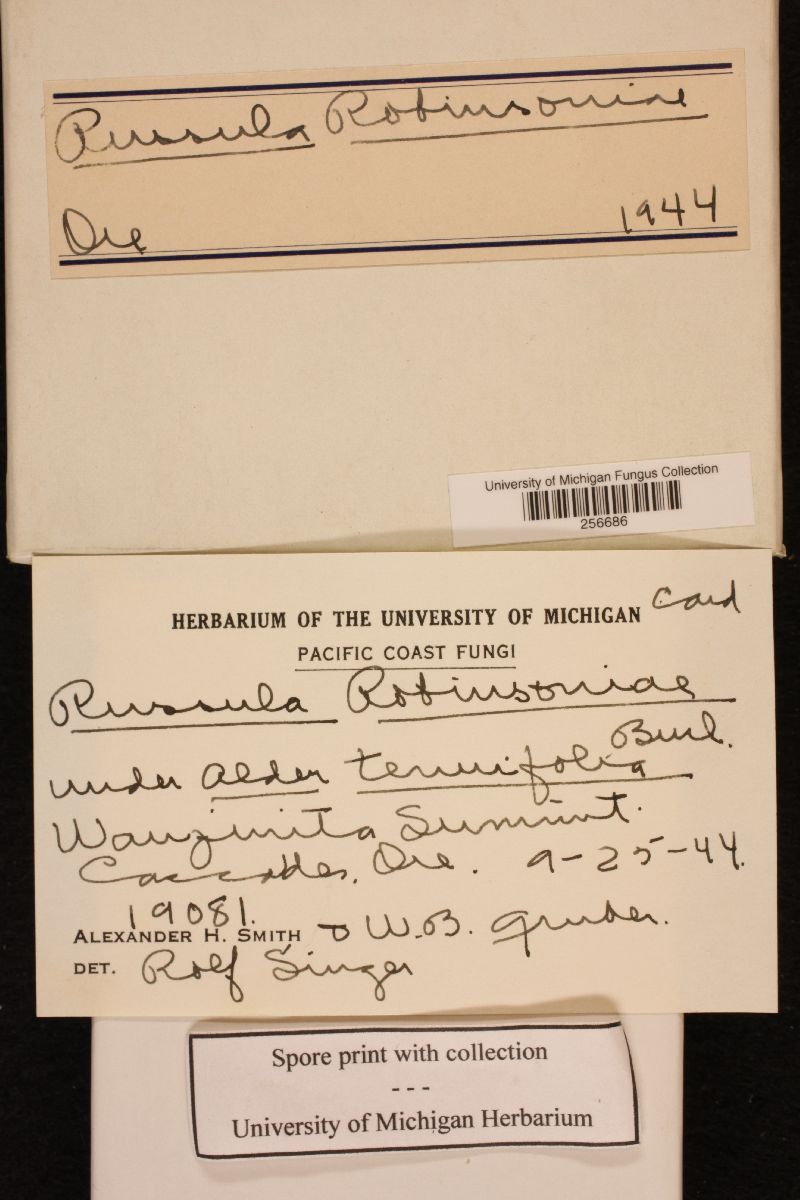 Russula Robinsoniae
Ore 1944
University of Michigan Fungus Collection
256686
HERBARIUM OF THE UNIVERSITY OF MICHIGAN Card
PACIFIC COAST FUNGI
Russula Robinsoniae
Burl.
under alder tenuifolia
Summit.
Cascades, Ore. 9-25-44.
19081.
ALEXANDER H. SMITH & W.B. Gruber.
DET. Rolf Singer
Spore print with collection
- - -
University of Michigan Herbarium